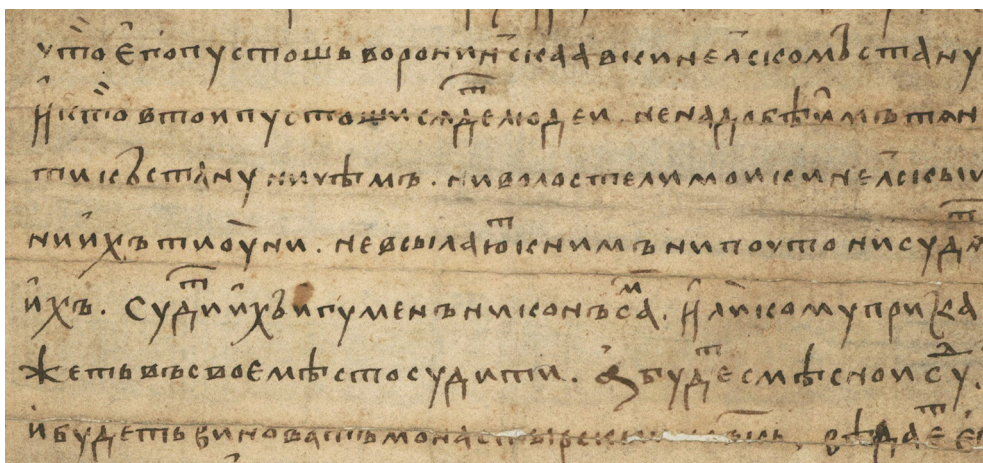 что еѓо пустошь воронинскаа в кинелском стану
и кто в тои пустоши сядет людеи не надобѣ им тян
ти къ стану ни чѣмъ . ни волостели мои кинелскыи
ни ихъ тиоуни . не всылают к ним ъ ни по что ни судят
ихъ . судит ихъ игуменъ никонъ сам . или кому прика
жеть въ свое мѣсто судити . а будет смѣсно и суд .
и будеть виноватъ монастырскии вѣдает е